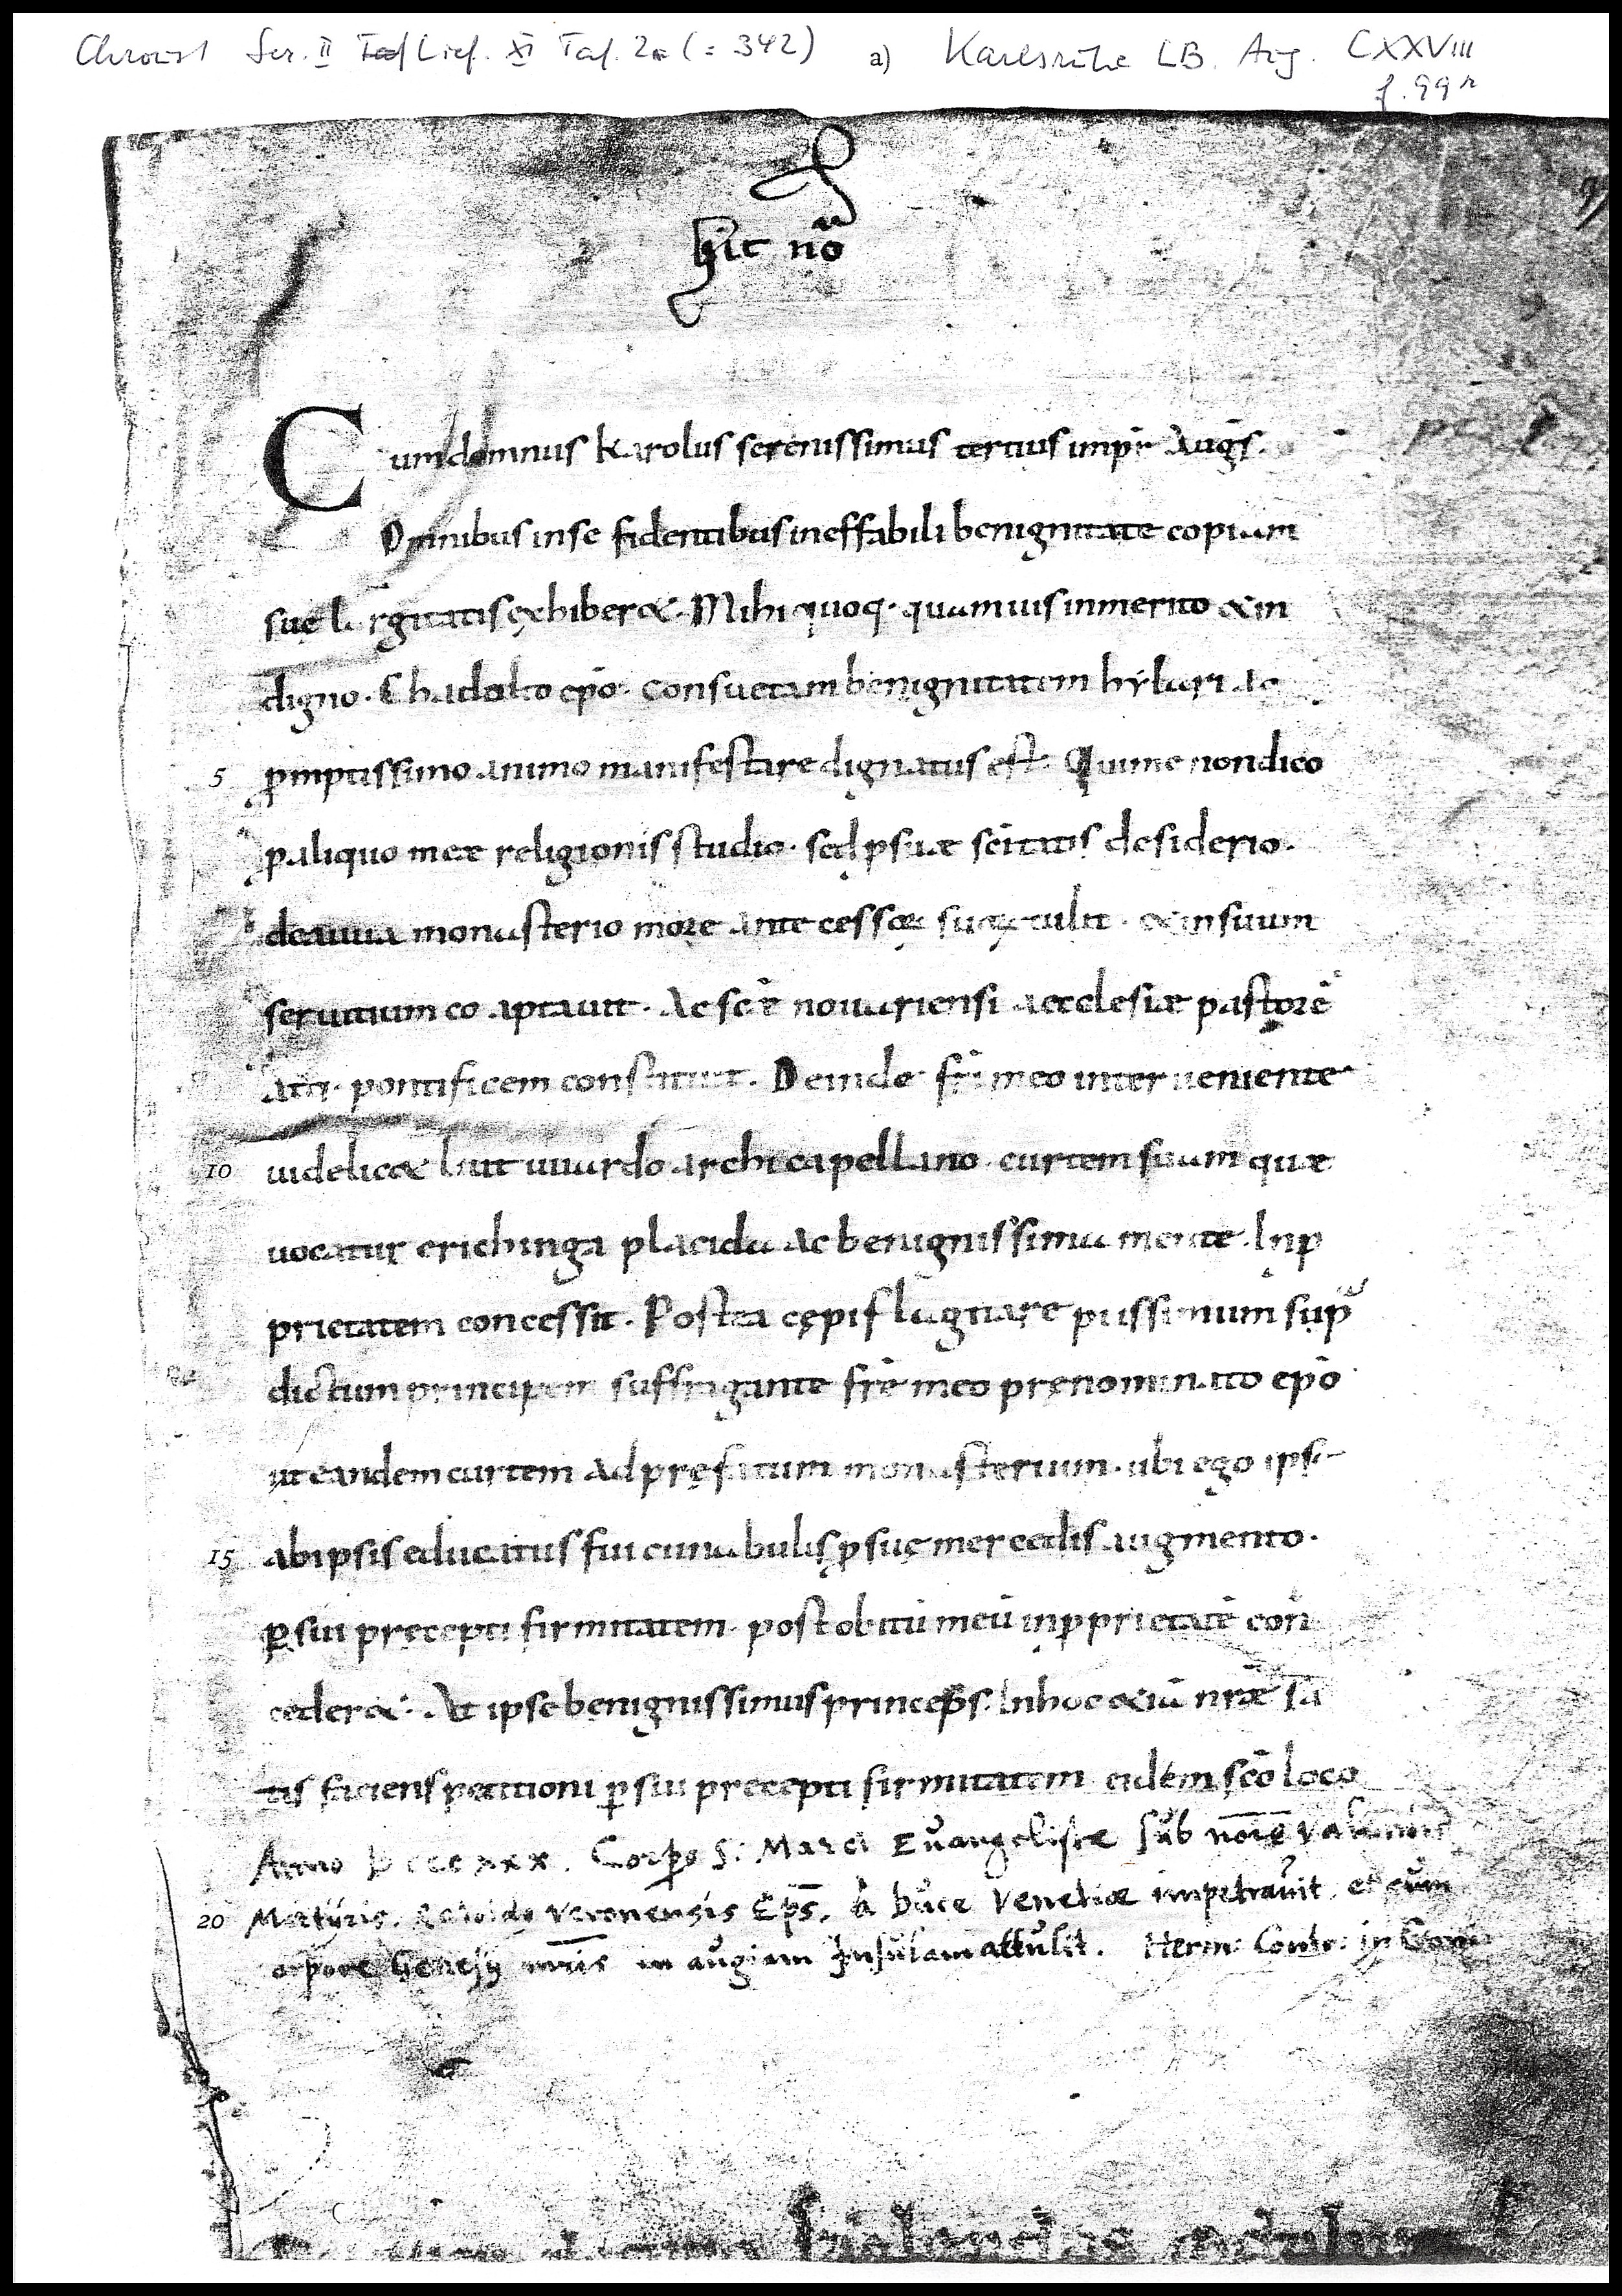 Chroust Ser. II Lief. XI Taf. 2a (= 342) a) Karlsruhe LB. Aug. CXXVIII
f. 99r
hic nō
Cum domnus karolus serenissimus tertius impr̄ Augs̄.
Omnibus in se fidentibus ineffabili benignitate copiam
suę largitatis exhiber&. Mihi quoq· quamuis inmerito & in
digno. Chadolto ep̄o. consuetam benignitatem hylari ac
ꝓmptissimo animo manifestare dignatus est. Qui me non dico
ꝑ aliquo meæ religionis studio. sed ꝑ suæ sc̄itatis desiderio.
de auua monasterio more antecessoꝝ suoꝝ tulit. & in suum
seruitium coaptauit. Ac sc̄ę nouariensi aecclesiæ pastorē
atq· pontificem constituit. Deinde fr̄i meo interueniente
uidelic& liutuuardo archicapellano. curtem suam quæ
uocatur erichinga placida ac benignissima mente. In ꝓ
prietatem concessit. Postea cępi flagitare piissimum sup̄
dictum principem suffragante fr̄e meo prenominato ep̄o
ut eandem curtem ad pręfatum monasterium. ubi ego ipse
ab ipsis educatus fui cunabulis ꝓ suę mercedis augmento.
ꝑ sui pręcepti firmitatem. post obitū meū in ꝓprietatē con
ceder&. At ipse benignissimus princeps. In hoc &iā nr̄æ sa
tis faciens petitioni ꝑ sui precepti firmitatem eidem sc̄o loco
Anno Dcccxxx. Corpus S. Marci Euangelistæ sub noīe
Martyris, Veronensis Ep̄s, à Duce Venetiæ impetrauit, et cum
corpore Genesij mr̄is in augiam Insulam attulit. Herm: Contr: in
5
10
15
20